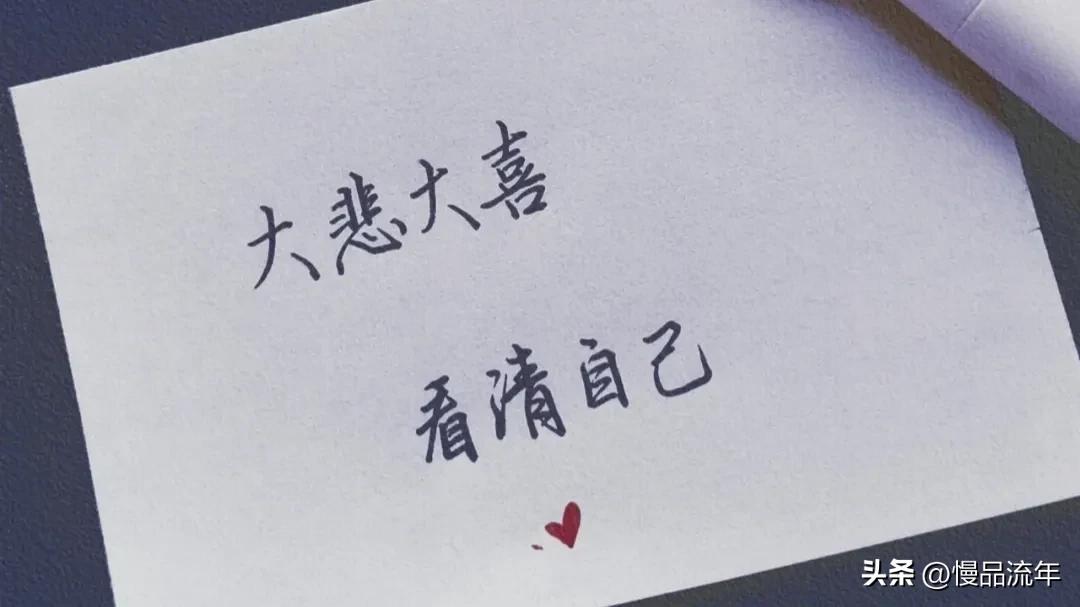 大悲大喜
看清自己
头条 @慢品流年